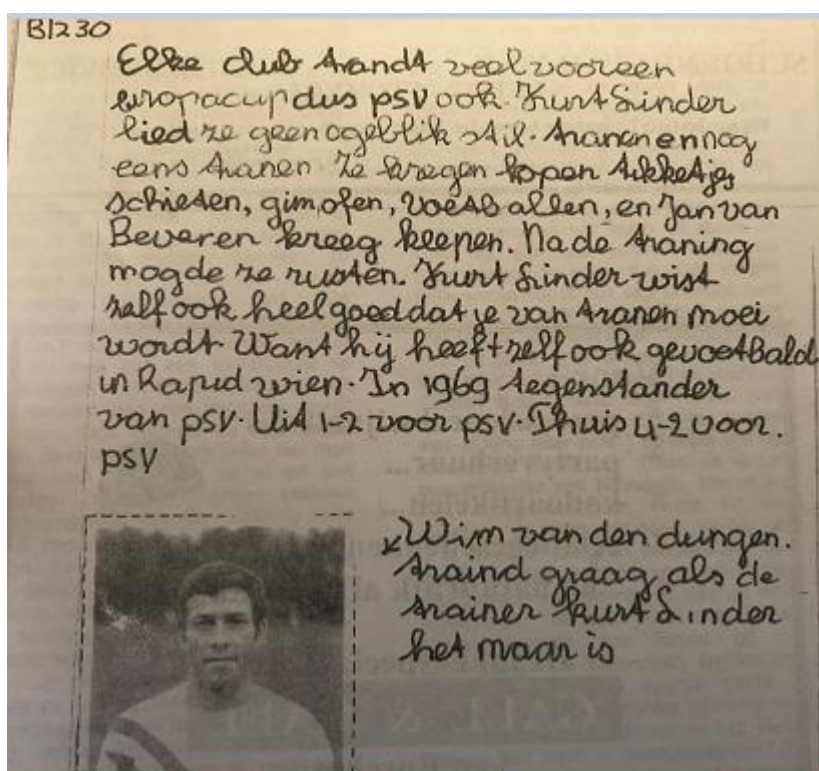 Blz 30
Elke club trandt veel voor een
europacup dus psv ook. Kurt Linder
lied ze geen ogeblik stil. tranen en nog
eens tranen. Ze kregen kopen tikketjes
schieten, gim, ofen, voetballen, en Jan van
Beveren kreeg keepen. Na de traning
mogde ze rusten. Kurt Linder wist
zelf ook heel goed dat je van tranen moei
wordt. Want hij heeft zelf ook gevoetbald
in Rapid wien. In 1969 tegenstander
van psv. Uit 1-2 voor psv. Thuis 4-2 voor.
psv
Wim van den dungen.
traind graag als de
trainer kurt Linder
het maar is
partyverhuur...